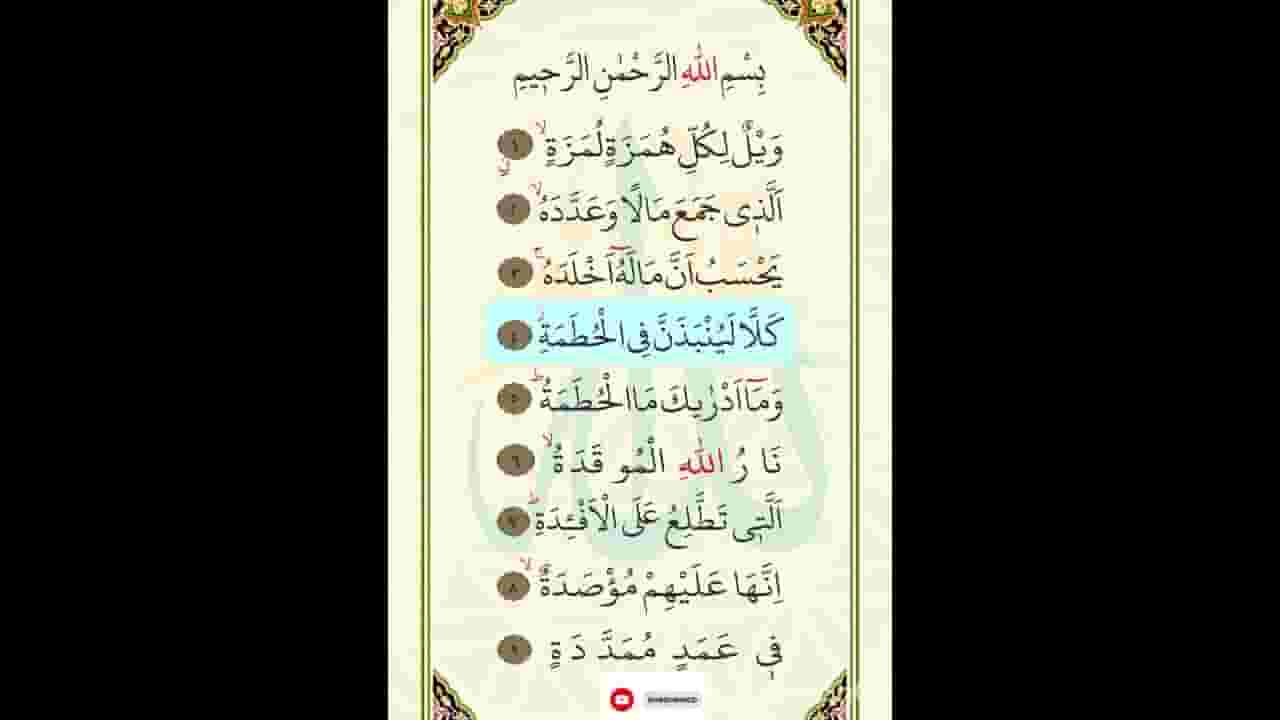 بِسْمِ اللّٰهِ الرَّحْمٰنِ الرَّحِيْمِ
وَيْلٌ لِكُلِّ هُمَزَةٍ لُمَزَةٍ ۙ ١
اَلَّذِى جَمَعَ مَالًا وَعَدَّدَهُ ۙ ٢
يَحْسَبُ اَنَّ مَالَهُٓ اَخْلَدَهُ ۚ ٣
كَلَّا لَيُنْبَذَنَّ فِى الْحُطَمَةِ ۖ ٤
وَمَٓا اَدْرٰىكَ مَا الْحُطَمَةُ ۗ ٥
نَارُ اللّٰهِ الْمُوقَدَةُ ۙ ٦
اَلَّتِى تَطَّلِعُ عَلَى الْاَفْئِدَةِ ۗ ٧
اِنَّهَا عَلَيْهِمْ مُؤْصَدَةٌ ۙ ٨
فِى عَمَدٍ مُمَدَّدَةٍ ٩